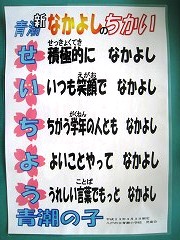 青潮 新なかよしのちかい
せ 積極的に なかよし
い いつも笑顔で なかよし
ち ちがう学年の人とも なかよし
よ よいことやって なかよし
う うれしい言葉でもっと なかよし
青潮の子